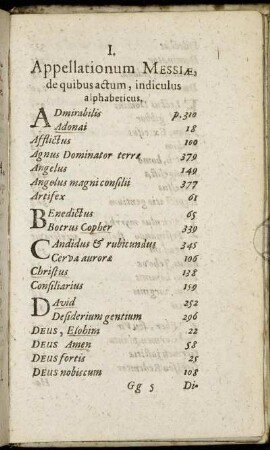 I.
Appellationum MESSIÆ,
de quibus actum, indiculus
alphabeticus.
ADmirabilis p. 310
Adonai 18
Afflictus 100
Agnus Dominator terræ 379
Angelus 149
Angelus magni consilii 377
Artifex 61
BEnedictus 65
Botrus Copher 339
CAndidus & rubicundus 345
Cerva auroræ 106
Christus 138
Consiliarius 159
DAvid 252
Desiderium gentium 296
DEUS, Elohim 22
DEUS Amen 58
DEUS fortis 25
DEUS nobiscum 108
Gg 5 Di-